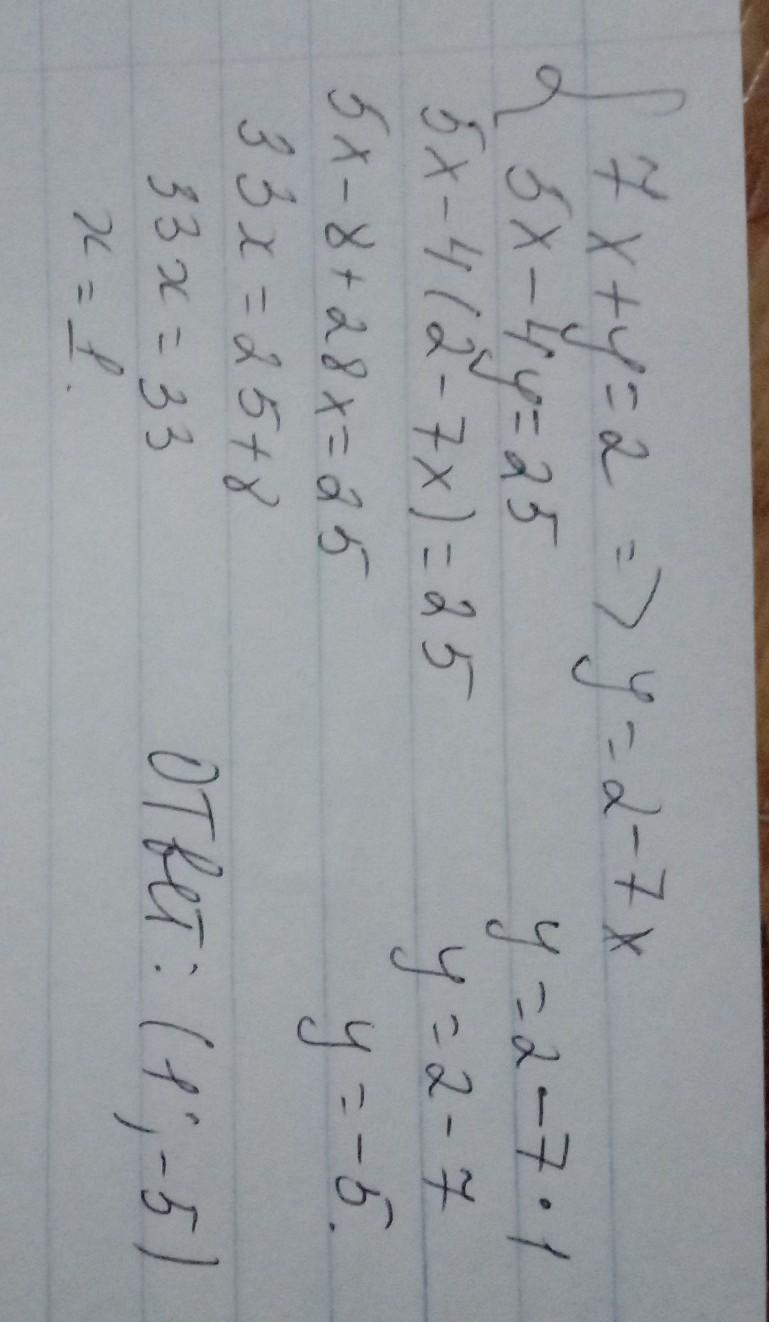 { 7x+y=2 => y=2-7x
5x-4y=25
y=2-7·1
5x-4(2-7x)=25
y=2-7
5x-8+28x=25
y=-5.
33x=25+8
33x=33
Ответ: (1;-5)
x=1.